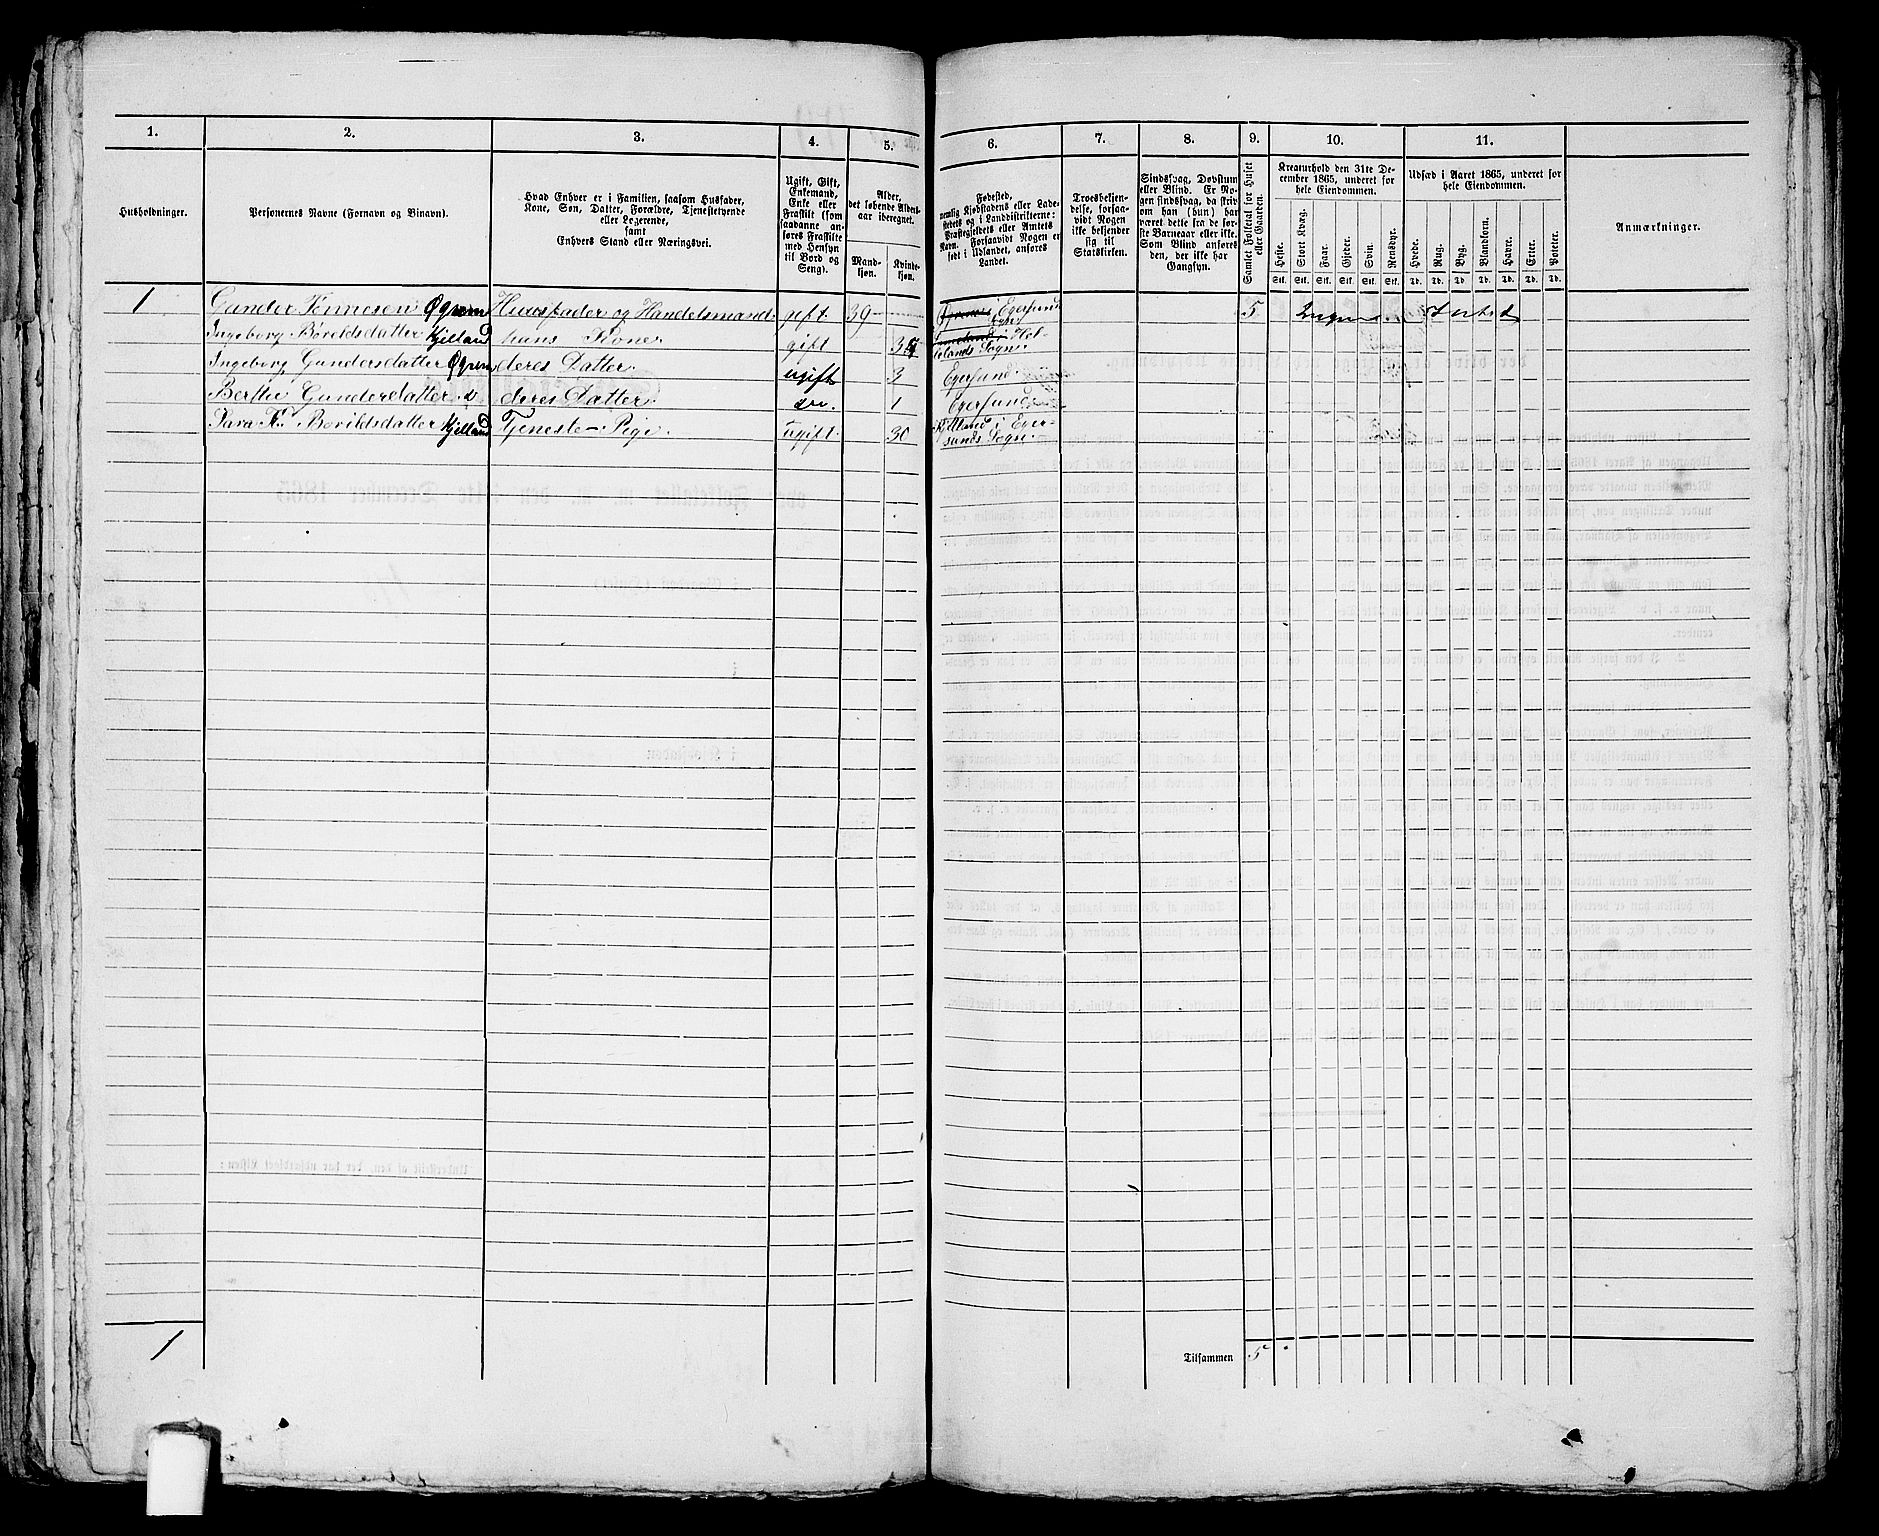 1.
2.
3.
4.
5.
6.
7.
8.
9.
10.
11.
Husholdninger.
Personernes Navne (Fornavn og Binavn).
Hvad Enhver er i Familien, saasom Husfader,
Kone, Søn, Datter, Forældre, Tjenestetyende
eller Logerende,
samt
Enhvers Stand eller Næringsvei.
Ugift, Gift,
Enkemand,
Enke eller
Fraskilt (som
saadanne an-
føres Fraskilte
med Hensyn
til Bord og
Seng).
Alder,
det løbende Alders-
aar iberegnet.
Mand-
kjøn.
Kvinde-
kjøn.
Fødested,
nemlig Kjøbstadens eller Lade-
stedets og i Landdistrikterne:
Præstegjeldets eller Amtets
Navn. Forsaavidt Nogen er
født i Udlandet, anføres
Landet.
Troesbekjen-
delse, forsaa-
vidt Nogen
ikke bekjender
sig til
Statskirken.
Sindssvag, Døvstum
eller Blind. Er No-
gen sindssvag, da skriv
om han (hun) har
været dette fra de før-
ste Barneaar eller ikke.
Som Blind anføres
den, der ikke har
Gangsyn.
Samlet Folketal for Huset
eller Gaarden.
Kreaturhold den 31te De-
cember 1865, underet for
hele Eiendommen.
Heste.
Stort Kvæg.
Faar.
Gjeder.
Svin.
Rensdyr.
Stk. Stk. Stk. Stk. Stk. Stk.
Udsæd i Aaret 1865, underet for
hele Eiendommen.
Hvede.
Rug.
Byg.
Blandkorn.
Havre.
Erter.
Poteter.
Td. Td. Td Td. Td. Td. Td.
Anmærkninger.
1 Gunder Tønnesen Øgrem Huusfader og Handelsmand gift 39 Egersund 5 Ingen Intet
Ingeborg Boreldsdatter Kjelland hans Kone gift Hel-
lelands Sogn
Ingeborg Gundersdatter Øgrem deres Datter ugift 3 Egersund
Berthe Gundersdatter deres Datter do. 1 Egersund
Sara Borildsdatter Kjelland Tjeneste-Pige Ugift 30 Kjelland i Eger-
sunds Sogn
1
Tilsammen 5